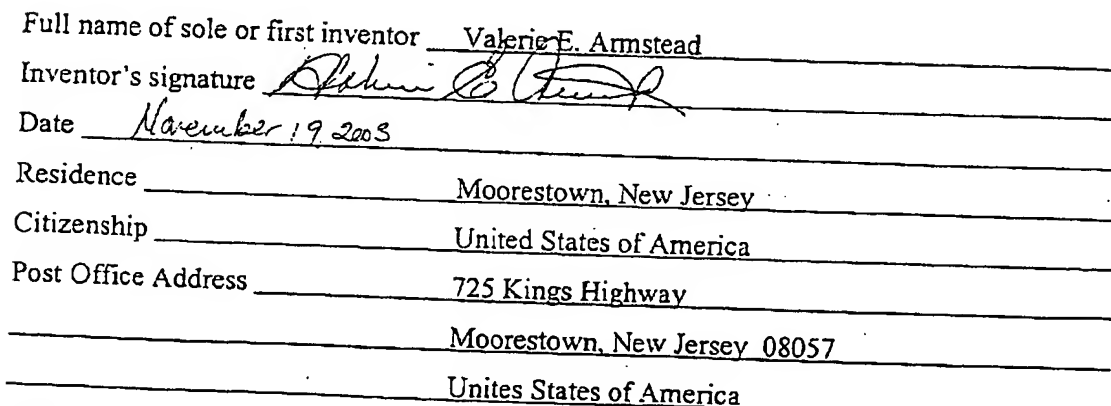 Full name of sole or first inventor Valerie E. Armstead
Inventor's signature
Date November 19 2003
Residence Moorestown, New Jersey
Citizenship United States of America
Post Office Address 725 Kings Highway
Moorestown, New Jersey 08057
Unites States of America